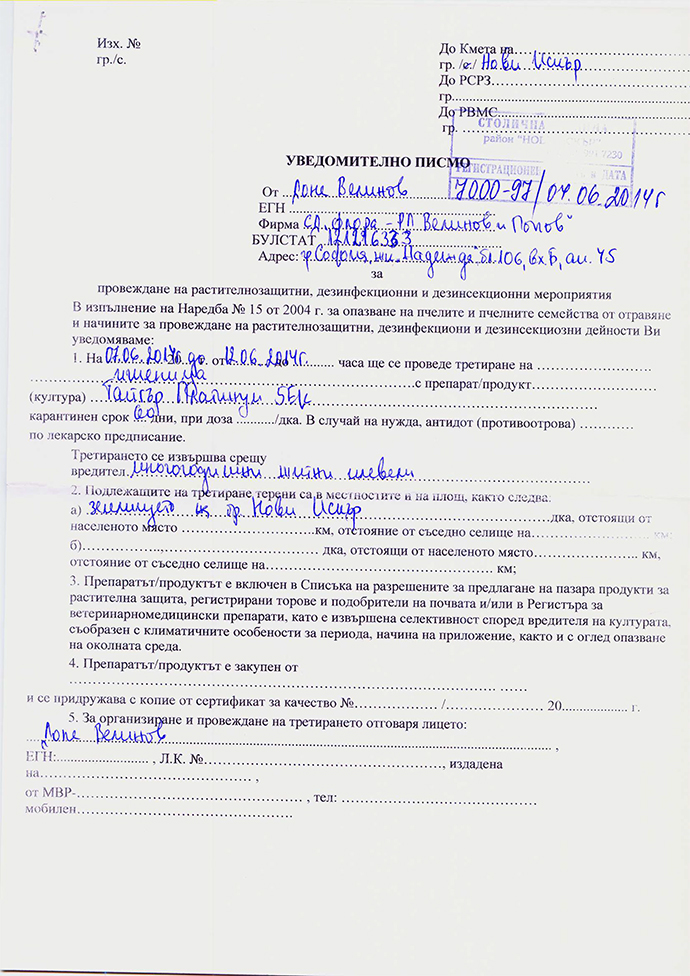 Изх. №
гр./с.
До Кмета на……………………
гр. /с./ Нови Искър
До РСРЗ……………………
гр...............................
До РВМС……………………
гр. ……………………
СТОЛИЧНА
район "НОВИ
7230
РЕГИСТРАЦИОНЕН И ДАТА
УВЕДОМИТЕЛНО ПИСМО
От ... Лоне Велинов 7000-97/04.06.2014г
ЕГН ……………………………
Фирма СД "Флора - РЛ Велинов и Попов"
БУЛСТАТ 121216333
Адрес: гр София, жк. Надежда бл. 106, вх Б, ап. 45
за
провеждане на растителнозащитни, дезинфекционни и дезинсекционни мероприятия
В изпълнение на Наредба № 15 от 2004 г. за опазване на пчелите и пчелните семейства от отравяне
и начините за провеждане на растителнозащитни, дезинфекциони и дезинсекциозни дейности Ви
уведомяваме:
1. На 07.06.2014г. до 20 г. от 12.06.2014г. до ........... часа ще се проведе третиране на ……………………
пшеница ……………………с препарат/продукт……………………
(култура) ... Тайгър Платинум 5ЕК ……………………
карантинен срок 60 дни, при доза .........../дка. В случай на нужда, антидот (противоотрова) …………
по лекарско предписание.
Третирането се извършва срещу
вредител многогодишни житни плевели ……………………
2. Подлежащите на третиране терени са в местностите и на площ, както следва:
а) землището на гр. Нови Искър ……………………дка, отстоящи от
населеното място ……………………км, отстояние от съседно селище на…………………… км;
б)…………………………………… дка, отстоящи от населеното място…………….. км,
отстояние от съседно селище на…………………………………… км;
3. Препаратът/продуктът е включен в Списъка на разрешените за предлагане на пазара продукти за
растителна защита, регистрирани торове и подобрители на почвата и/или в Регистъра за
ветеринарномедицински препарати, като е извършена селективност според вредителя на културата,
съобразен с климатичните особености за периода, начина на приложение, както и с оглед опазване
на околната среда.
4. Препаратът/продуктът е закупен от
…………………………………………………… ……
и се придружава с копие от сертификат за качество №…………… /……………… 20.................... г.
5. За организиране и провеждане на третирането отговаря лицето:
..... Лоне Велинов ................................................ ,
ЕГН:........................... , Л.К. №……………………………………, издадена
на…………………………………… ,
от МВР-…………………………………… , тел: ……………………………
мобилен……………………………………